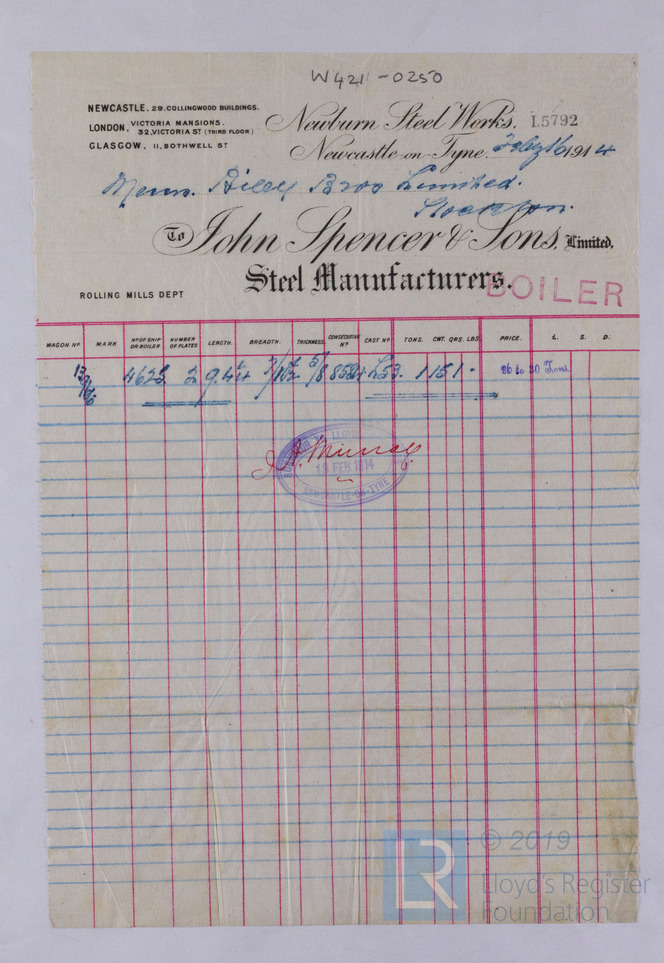 W421-0250
NEWCASTLE. 29. COLLINGWOOD BUILDINGS.
LONDON, VICTORIA MANSIONS.
32, VICTORIA ST (THIRD FLOOR)
GLASGOW. 11, BOTHWELL ST
Newburn Steel Works. I.5792
Newcastle-on-Tyne. Feby 16 1914
Messrs. Riley Bros Limited.
Stockton.
To John Spencer & Sons, Limited,
Steel Manufacturers.
BOILER
ROLLING MILLS DEPT
WAGON No MARK No OF SHIP OR BOILER NUMBER OF PLATES LENGTH. BREADTH. THICKNESS. CONSECUTIVE No CAST No TONS. CWT. QRS. LBS. PRICE. £. S. D.
4625 2 26 to 30 Tons.
J. A. Murray
16 FEB 1914
NEWCASTLE-ON-TYNE
LR
© 2019
Lloyd's Register
Foundation